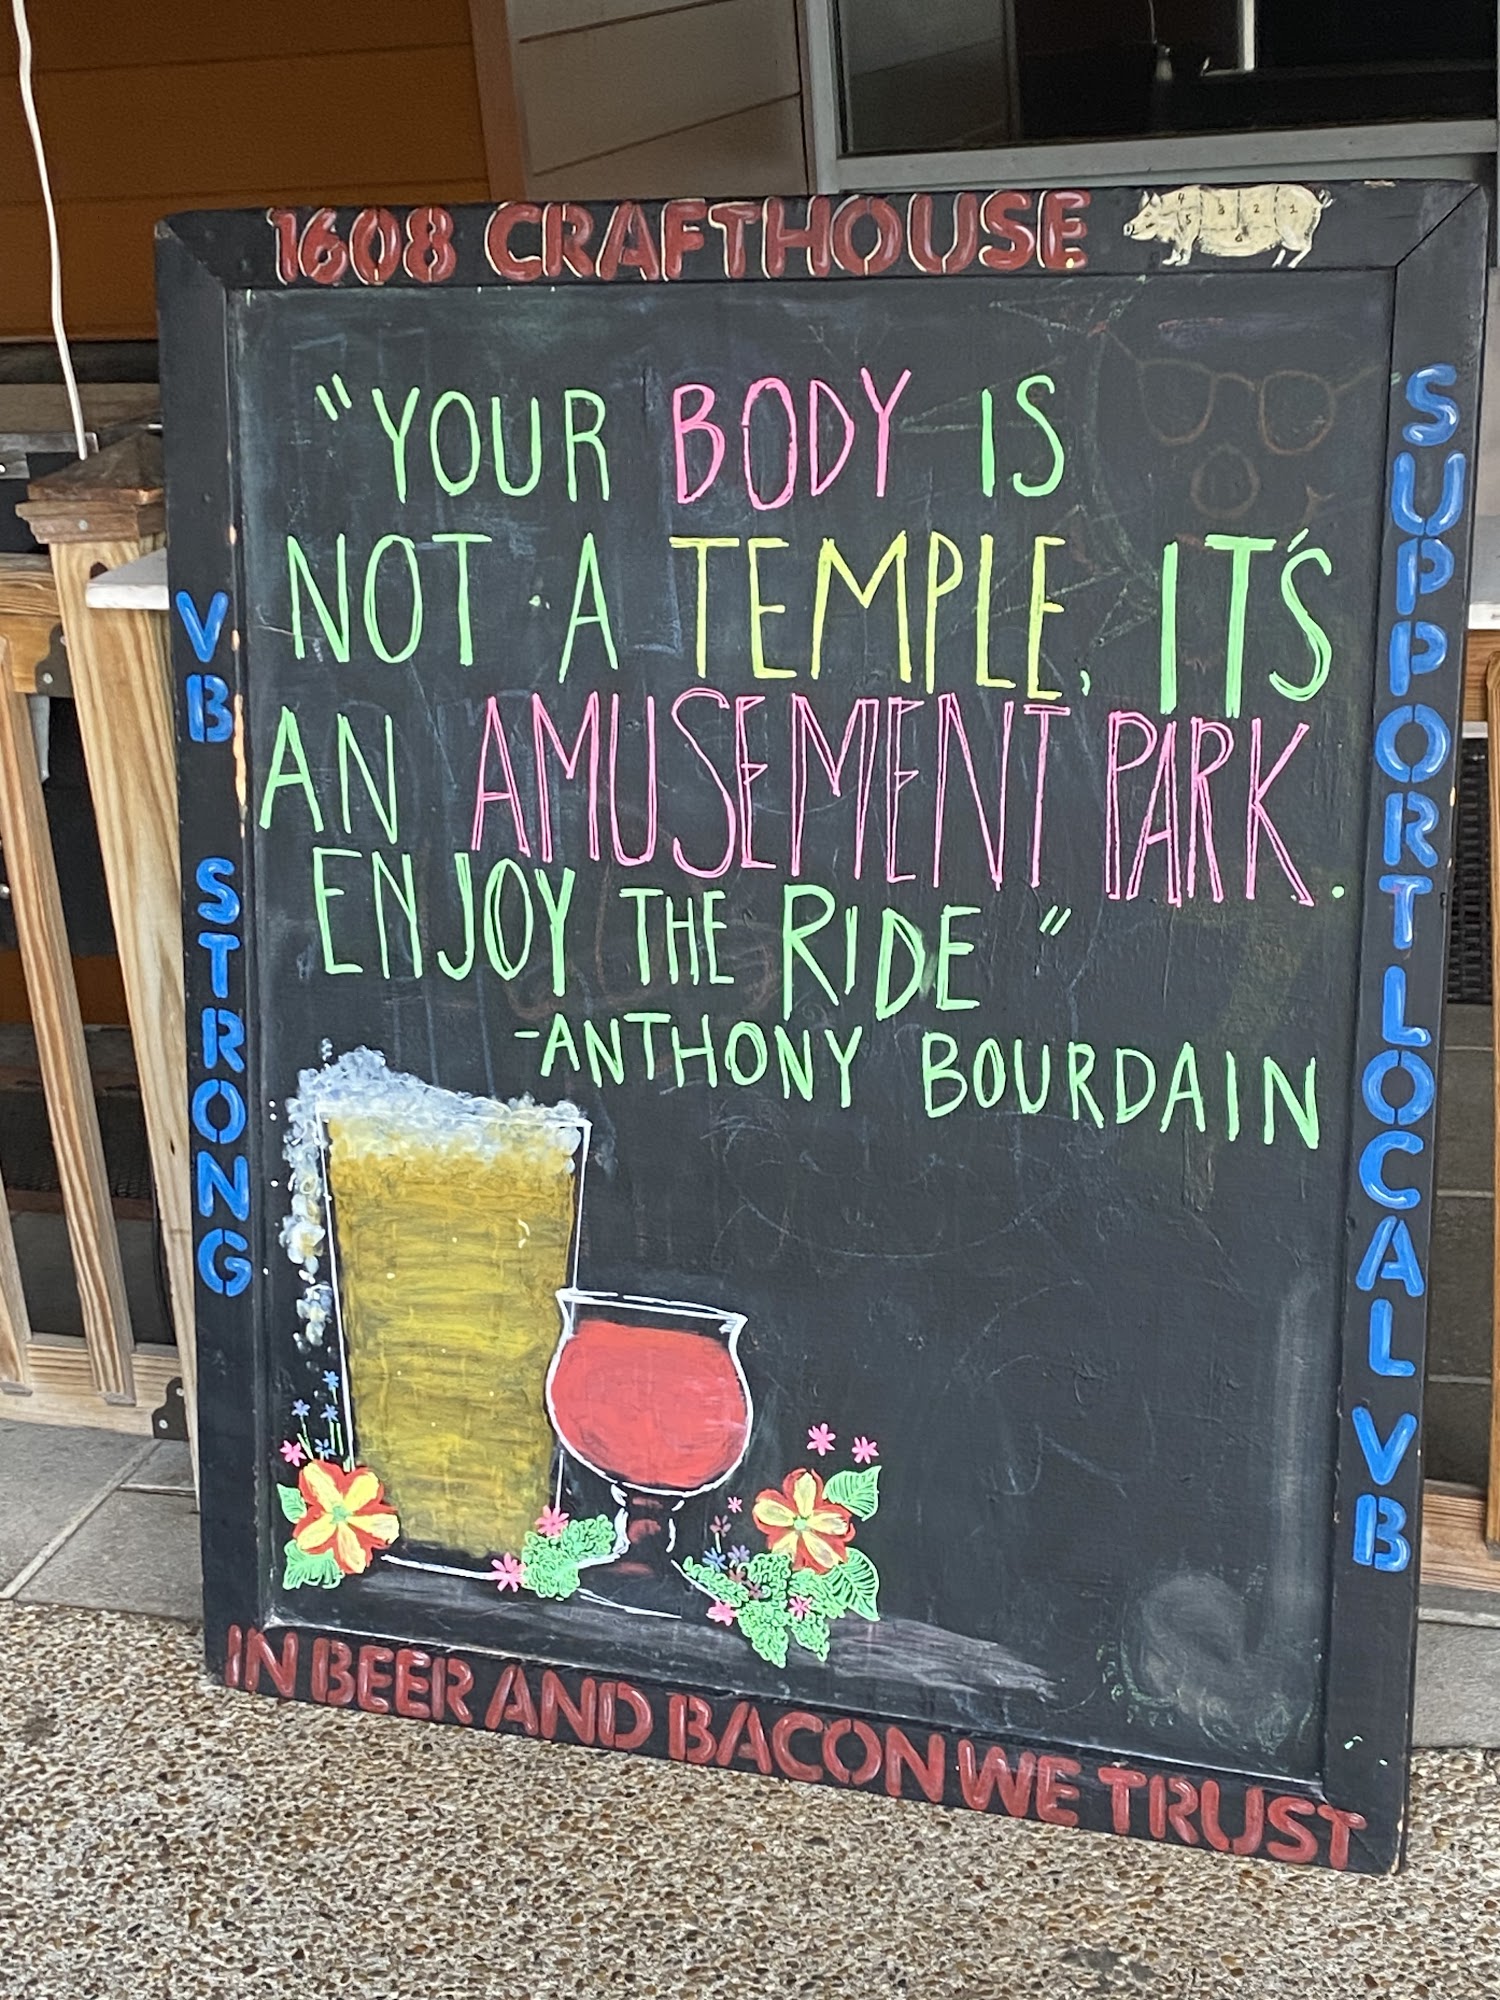 1608 CRAFTHOUSE
"YOUR BODY IS
NOT A TEMPLE, IT'S
AN AMUSEMENT PARK.
ENJOY THE RIDE"
-ANTHONY BOURDAIN
VB STRONG
SUPPORT LOCAL VB
IN BEER AND BACON WE TRUST